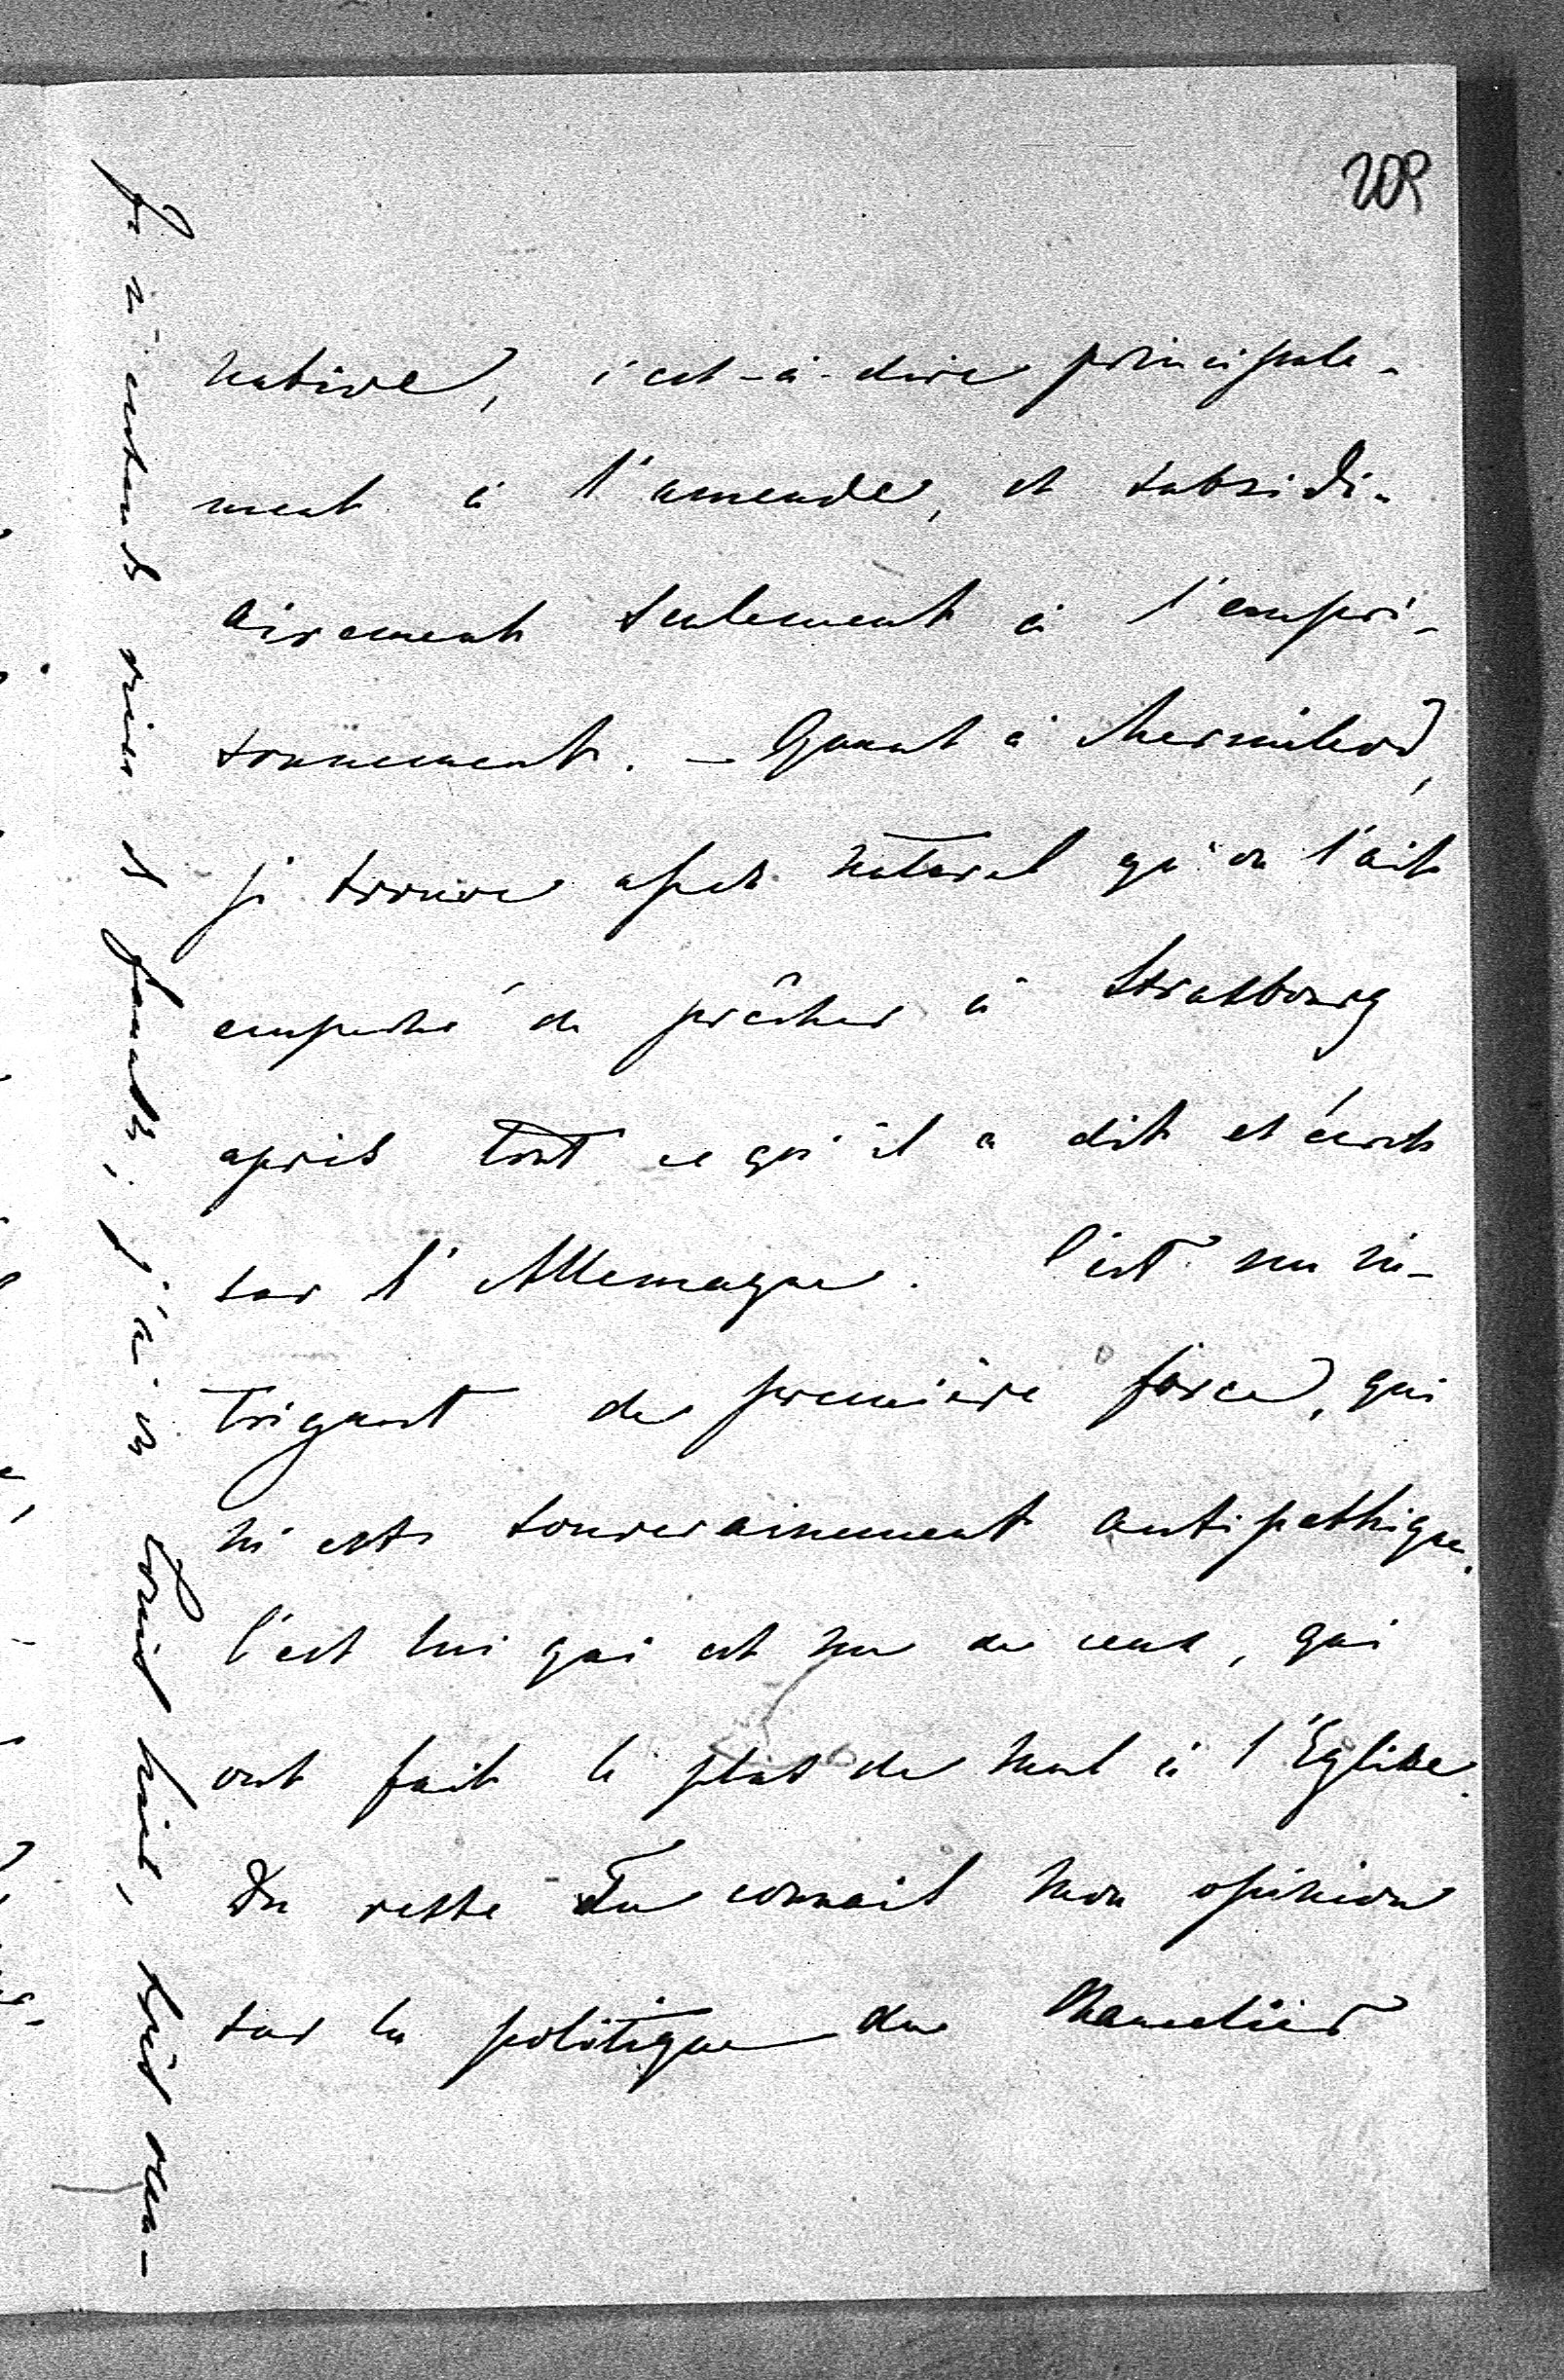 209
native, c'est-à-dire principale-
ment à l'amende, et subsidi-
airement seulement à l'empri-
sonnement. - Quant à Mermillod,
je trouve assez naturel qu'on l'ait
empeché de prêcher à Strasbourg
après tout ce qu'il a dit et écrit
sur l'Allemagne. C'est un in-
trigant de première force, qui
m'est souverainement antipathique.
C'est lui qui est un de ceux, qui
ont fait le plus de mal à l'Église.
Du reste Tu connais mon opinion
sur la politique du Chancelier